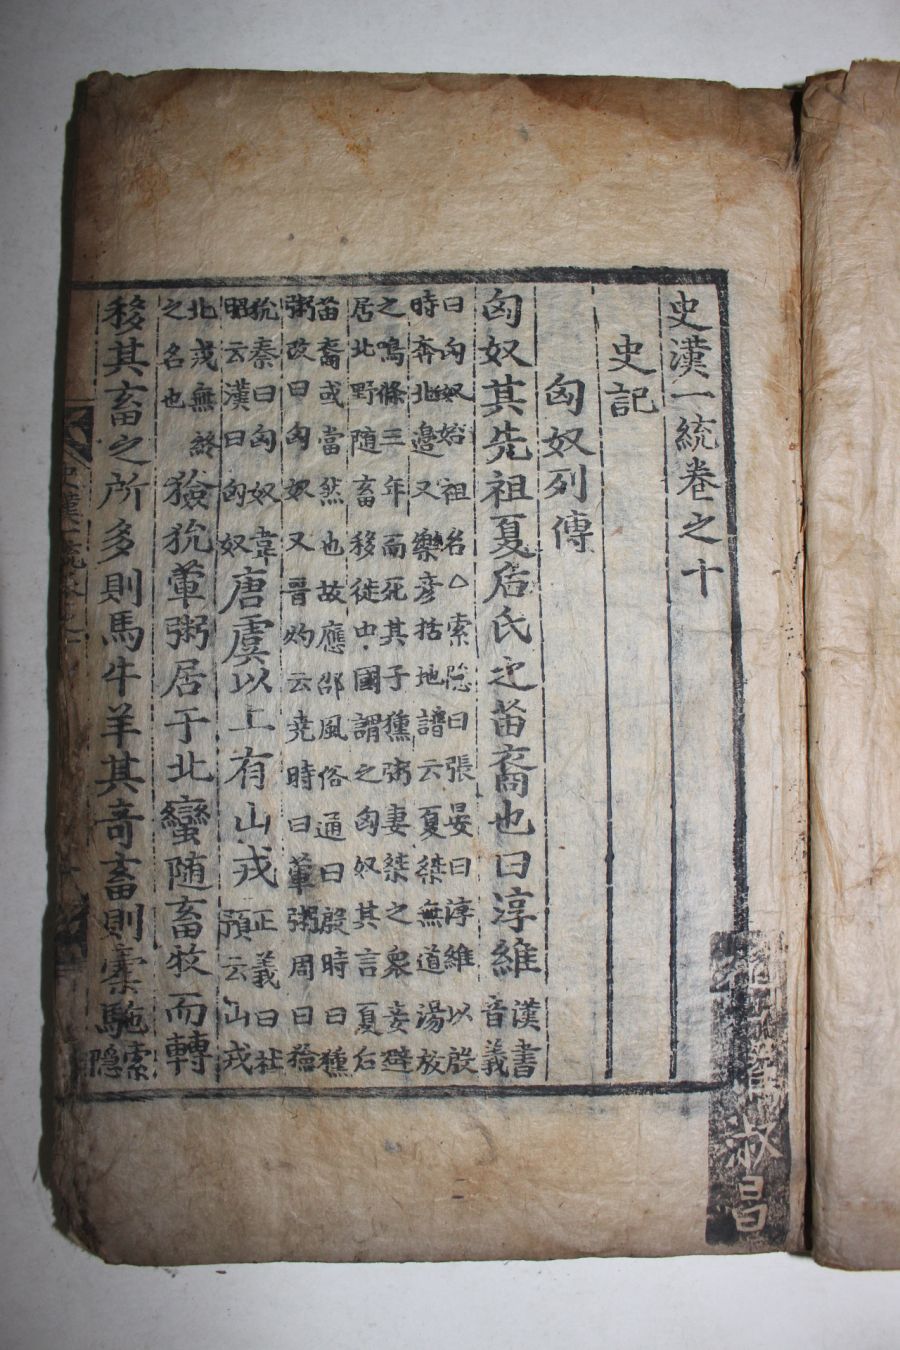 史漢一統卷之十
史記
匈奴列傳
匈奴其先祖夏后氏之苗裔也曰淳維漢書音義
曰匈奴始祖名△索隱曰張晏曰淳維以殷
時奔北邊又樂彦括地譜云夏桀無道湯放
之鳴條三年而死其子獯粥妻桀之衆妾避
居北野随畜移徙中國謂之匈奴其言夏后
苗裔或當然也故應邵風俗通曰殷時曰獯
粥改曰匈奴又晋灼云堯時曰葷粥周曰獫
狁秦曰匈奴韋昭云漢曰匈奴唐虞以上有山戎正義曰杜預云山戎
北戎無終之名也獫狁葷粥居于北蠻随畜牧而轉
移其畜之所多則馬牛羊其竒畜則橐駞索隱
淑昌